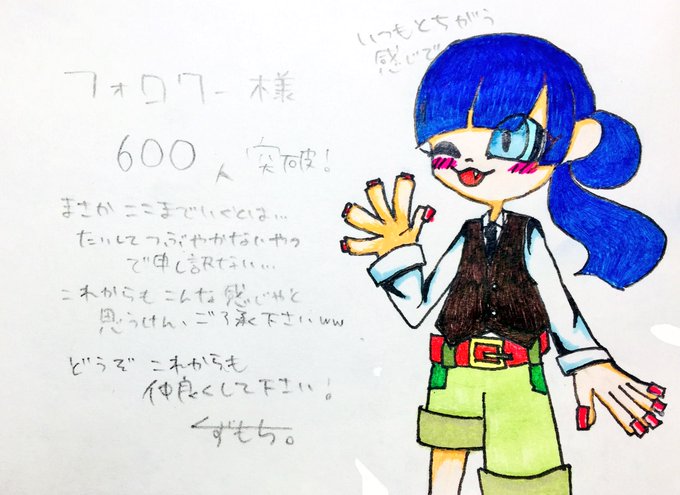 いつもとちがう
感じで
フォロワー様
600人 突破!
まさかここまでいくとは...
たいしてつぶやかないやつ
で申し訳ない...
これからもこんな感じやと
思うけん、ご了承下さいww
どうぞ これからも
仲良くして下さい!
くずもち。